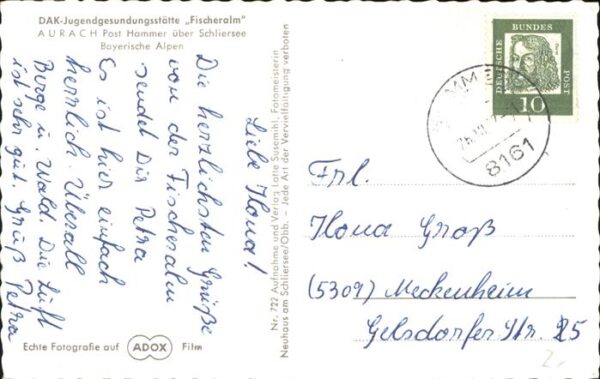 DAK-Jugendgesundungsstätte „Fischeralm"
AURACH Post Hammer über Schliersee
Bayerische Alpen
Liebe Ilona!
Die herzlichsten Grüße
von der Fischeralm
sendet Dir Petra
Es ist hier einfach
herrlich. Überall
Berge u. Wald. Die Luft
ist sehr gut. Gruß Petra
Echte Fotografie auf ADOX Film
Nr. 722 Aufnahme und Verlag Lotte Susemihl, Fotomeisterin
Neuhaus am Schliersee/Obb. – Jede Art der Vervielfältigung verboten
DEUTSCHE BUNDES POST
10
8161
Frl.
Ilona Groß
(5309) Meckenheim
Gelsdorfer Str. 25